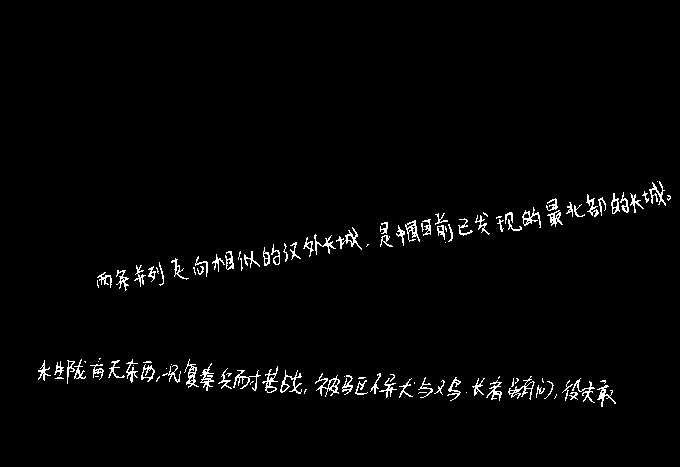 两条并列走向相似的汉外长城,是中国目前已发现的最北部的长城。
禾生陇亩无东西,况复秦兵耐苦战,被驱不异犬与鸡.长者虽有问,役夫敢